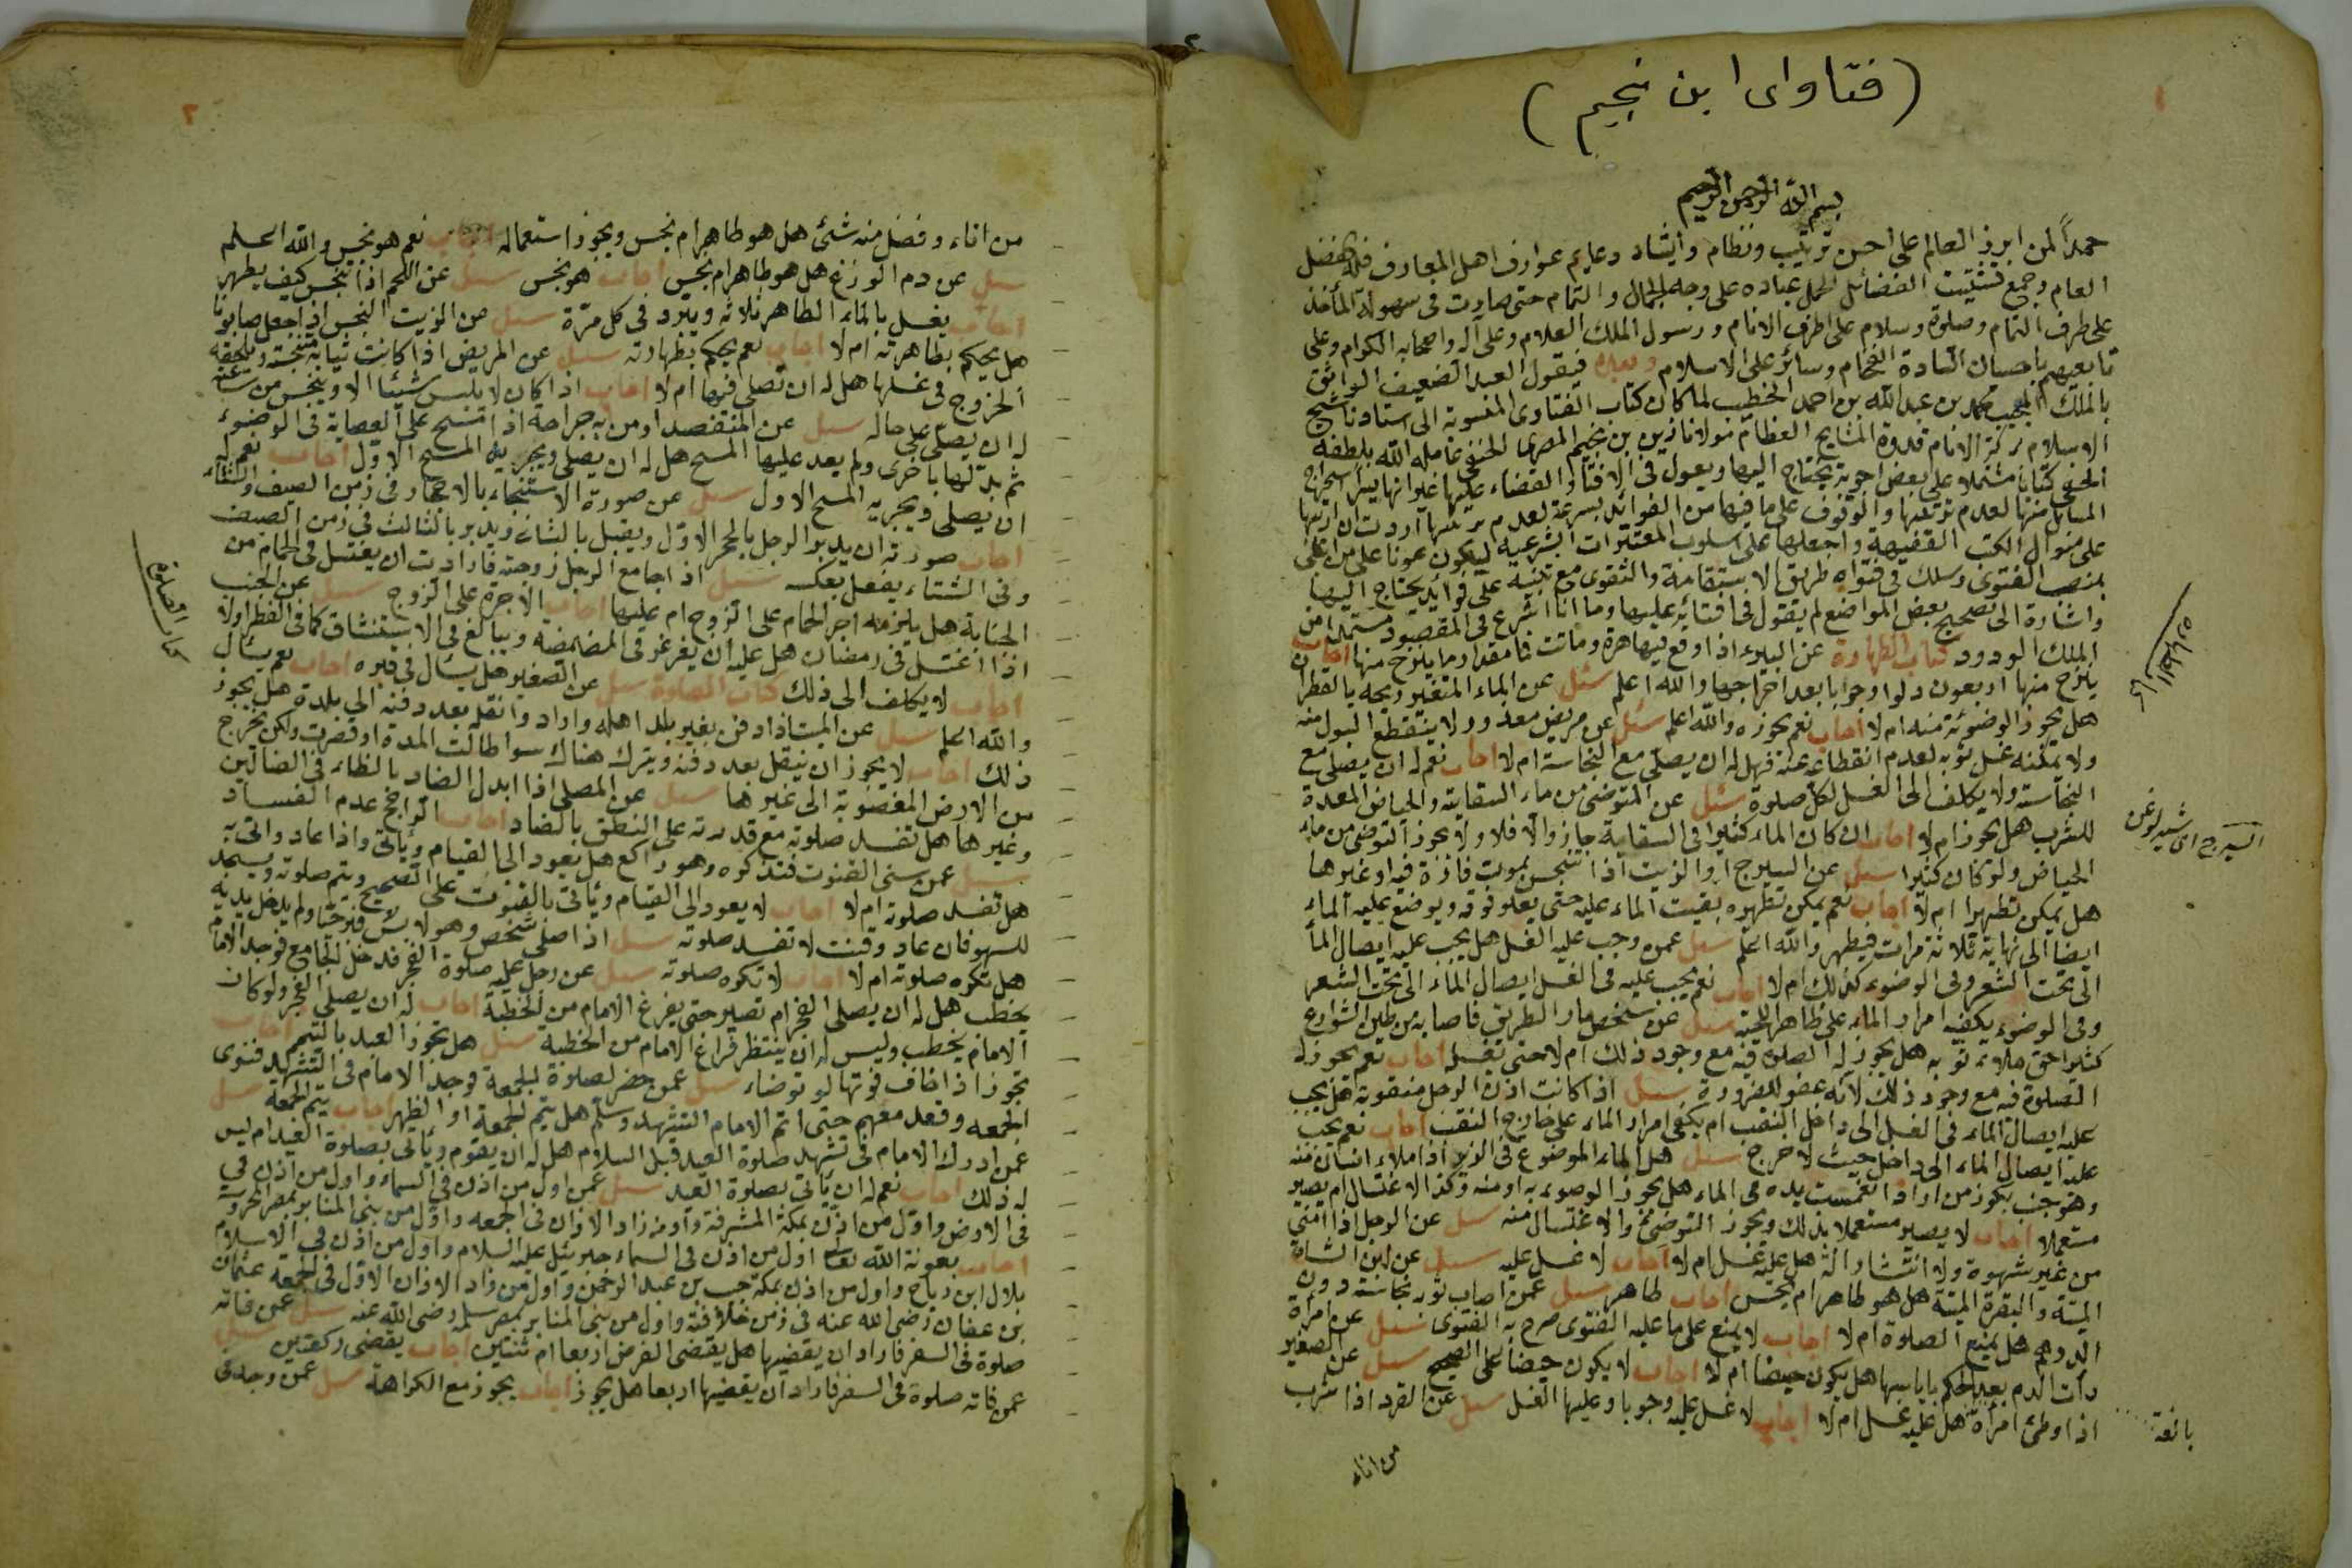 (فتاوای ابن نجیم)
بسم الله الرحمن الرحيم
حمداً لمن ابرز العالم على احسن ترتيب ونظام وانشاد دعايم عوارف اهل المعارف فله الفضل
العام وجمع تشتيت الفضائل لكل عباده على وجه الجمال والتمام حتى صارت فى سهولة المأخذ
على طرف التمام وصلوة وسلام على اشرف الانام ورسول الملك العلام وعلى آله واصحابه الكرام وعلى
تابعيهم باحسان السادة الفخام وسائر علماء الاسلام وبعد فيقول العبد الضعيف الواثق
بالملك المجيب محمد بن عبد الله بن احمد الخطيب لما كان كتاب الفتاوى المنسوبة الى استاذنا شيخ
الاسلام بركة الانام قدوة المشايخ العظام مولانا زين بن نجيم المصرى الحنفى عامله الله بلطفه
الخفى كتابا مشتملا على بعض اجوبة يحتاج اليها ويعول فى الافتاء والقضاء عليها غير انها يعسر استخراج
المسائل منها لعدم ترتيبها والوقوف على ما فيها من الفوائد بسرعة لعدم تركيبها اردت ان ارتبها
على منوال الكتب الفقيهة واجعلها على اسلوب المعتبرات الشرعية ليكون عونا على من ابتلى
بمنصب الفتوى وسلك فى فتواه طريق الاستقامة والتقوى مع تنبيه على فوائد يحتاج اليها
واشارة الى تصحيح بعض المواضع لم يقول فى افتائه عليها وها انا اشرع فى المقصود مستمدا من
الملك الودود كتاب الطهارة عن البئر اذا وقع فيها هرة وماتت فما مقدار ما ينزح منها اجاب
ينزح منها اربعون دلوا وجوبا بعد اخراجها والله اعلم سئل عن الماء المتغير ريحه بالقطران
هل يجوز الوضوء منه ام لا اجاب نعم يجوز والله اعلم سئل عن مريض معذور لا ينقطع البول منه
ولا يمكنه غسل ثوبه لعدم انقطاعه عنه فهل له ان يصلى مع النجاسة ام لا اجاب نعم له ان يصلى مع
النجاسة ولا يكلف الى الغسل لكل صلوة سئل عن المتوضى من ماء السقاية والحياض المعدة
للشرب هل يجوز ام لا اجاب ان كان الماء كثيرا فى السقاية جاز والا فلا ولا يجوز التوضى من ماء
الحياض ولو كان كثيرا سئل عن السيرج او الزيت اذا تنجس بموت فارة فيه او غيرها
هل يمكن تطهيرا ام لا اجاب نعم يمكن تطهيره بقيت الماء عليه حتى يعلو فوقه ويوضع عليه الماء
ايضا الى نهاية ثلاثة مرات فيطهر والله اعلم سئل عمن وجب عليه الغسل هل يجب عليه ايصال الماء
الى تحت الشعر وفى الوضوء كذلك ام لا اجاب نعم يجب عليه فى الغسل ايصال الماء الى تحت الشعر
وفى الوضوء يكفيه امرار الماء على ظاهر اللحية سئل عن شخص مار الطريق فاصابه من طين الشوارع
كثيرا حتى ملاء ثوبه هل يجوز له الصلوة فيه مع وجود ذلك ام لا حتى يغسله اجاب نعم يجوز له
الصلوة فيه مع وجود ذلك لانه عفو للضرورة سئل اذا كانت اذن الرجل منقوبة هل يجب
عليه ايصال الماء فى الغسل الى داخل النقب ام يكفى امرار الماء على خارج النقب اجاب نعم يجب
عليه ايصال الماء الى داخل حيث لا حرج سئل هل الماء الموضوع فى الزير اذا ملاء انسان منه
وهو جنب بكوز من اراد انغمست يده فى الماء هل يجوز الوضوء به او منه وكذا الاغتسال ام يصير
مستعملا اجاب لا يصير مستعملا بذلك ويجوز التوضئ والاغتسال منه سئل عن الرجل اذا امنى
من غير شهوة ولا انتشار الة هل عليه غسل ام لا اجاب لا غسل عليه سئل عن لبن الشاة
الميتة والبقرة الميتة هل هو طاهر ام نجس اجاب طاهر سئل عمن اصاب ثوبه نجاسة دون
الدرهم هل يمنع الصلوة ام لا اجاب لا يمنع على ما عليه الفتوى صرح به الفتوى سئل عن امرأة
رأت الدم بعد الحكم باياسها هل يكون حيضا ام لا اجاب لا يكون حيضا على الصحيح سئل عن الصغير
اذا وطئ امرأة هل عليه غسل ام لا اجاب لا غسل عليه وجوبا وعليها الغسل سئل عن القرد اذا شرب
بالغة
من اناء
السيرج اى شيرلوغن
من اناء وفضل منه شئ هل هو طاهر ام نجس ويجوز استعماله اجاب نعم هو نجس والله اعلم
سئل عن دم الوزغ هل هو طاهر ام نجس اجاب هو نجس سئل عن اللحم اذا تنجس كيف يطهر
اجاب يغسل بالماء الطاهر ثلاثة ويبرد فى كل مرة سئل عن الزيت النجس اذا جعل صابونا
هل يحكم بطاهرته ام لا اجاب نعم يحكم بطهارته سئل عن المريض اذا كانت ثيابه متنجسة ويلحقه
الحروج فى غسلها هل له ان تصلى فيها ام لا اجاب اذا كان لا يلبس شيئا الا ويتنجس من ساعته
له ان يصلى على حاله سئل عن المنتقصد او من به جراحة اذا مسح على العصابة فى الوضوء
ثم بدلها باخرى ولم يعد عليها المسح هل له ان يصلى ويجزيه المسح الاول اجاب نعم له
ان يصلى ويجزيه المسح الاول سئل عن صورة الاستنجاء بالاحجار فى زمن الصيف والشتاء
اجاب صورته ان يدبر الرجل بالحجر الاول ويقبل بالثانى ويدبر بالثالث فى زمن الصيف
وفى الشتاء يفعل بعكسه سئل اذا جامع الرجل زوجته فارادت ان يغتسل فى الحمام من
الجنابة هل يلزمه اجر الحمام على الزوج ام عليها اجاب الاجرة على الزوج سئل عن الجنب
اذا اغتسل فى رمضان هل عليه ان يغرغر فى المضمضة ويبالغ فى الاستنشاق كما فى الفطر اولا
اجاب لا يكلف الى ذلك كتاب الصلوة سئل عن الصغير هل يسأل فى قبره اجاب نعم يسأل
والله اعلم سئل عن الميت اذا دفن بغير بلد اهله واراد وانقله بعد دفنه الى بلدة هل يجوز
ذلك اجاب لا يجوز ان ينقل بعد دفنه ويترك هناك سوا طالت المدة او قصرت ولكن يخرج
من الارض المغصوبة الى غيرها سئل عن المصلى اذا ابدل الضاد بالظاء فى الضالين
وغيرها هل تفسد صلوته مع قدرته على النطق بالضاد اجاب الراجح عدم الفساد
سئل عمن سنى القنوت فتذكره وهو راكع هل يعود الى القيام ويأتى واذا عاد واتى به
هل تفسد صلوته ام لا اجاب لا يعود الى القيام ويأتى بالقنوت على الصحيح ويتم صلوته ويسجد
للسهو فان عاد وقنت لا تفسد صلوته سئل اذا صلى شخص وهو لابس فرجيا ولم يدخل يديه
هل تكره صلوته ام لا اجاب لا تكره صلوته سئل عن رجل عليه صلوة الفجر فدخل الجامع فوجد الامام
يخطب هل له ان يصلى الفجر ام تصير حتى يفرغ الامام من الخطبة اجاب له ان يصلى الفجر ولو كان
الامام يخطب وليس له ان ينتظر فراغ الامام من الخطبة سئل هل تجوز العيد بالتيمم اجاب
تجوز اذا خاف فوتها لو توضاء سئل عمن حضر لصلوة الجمعة فوجد الامام فى التشهد فنوى
الجمعه وقعد معهم حتى اتم الامام التشهد وسلم هل يتم الجمعة او الظهر اجاب يتم الجمعة سئل
عمن ادرك الامام فى تشهد صلوة العيد قبل السلام هل له ان يقوم ويأتى بصلوة العيد ام ليس
له ذلك اجاب نعم له ان يأتى بصلوة العيد سئل عمن اول من اذن فى السماء واول من اذن فى
فى الارض واول من اذن بمكة المشرفة واو منه زاد الاذان فى الجمعه واول من بنى المنابر بمصر المحروسة
اجاب بعونة الله تعالى اول من اذن فى السماء جبريئيل عليه السلام واول من اذن فى الاسلام
بلال ابن رباح واول من اذن بمكة حبيب بن عبد الرحمن واول من زاد الاذان الاول فى الجمعة عثمان
بن عفان رضى الله عنه فى زمن خلافته واول من بنى المنابر بمصر سلمة رضى الله عنه سئل عمن فاته
صلوة فى السفر فاراد ان يقضيها هل يقضى الفرض اربعا ام ثنتين اجاب يقضى ركعتين سئل
عمن فاته صلوة فى السفر فاراد ان يقضيها اربعا هل يجوز اجاب يجوز مع الكراهة سئل عمن وجد فى
كتاب الصلوة